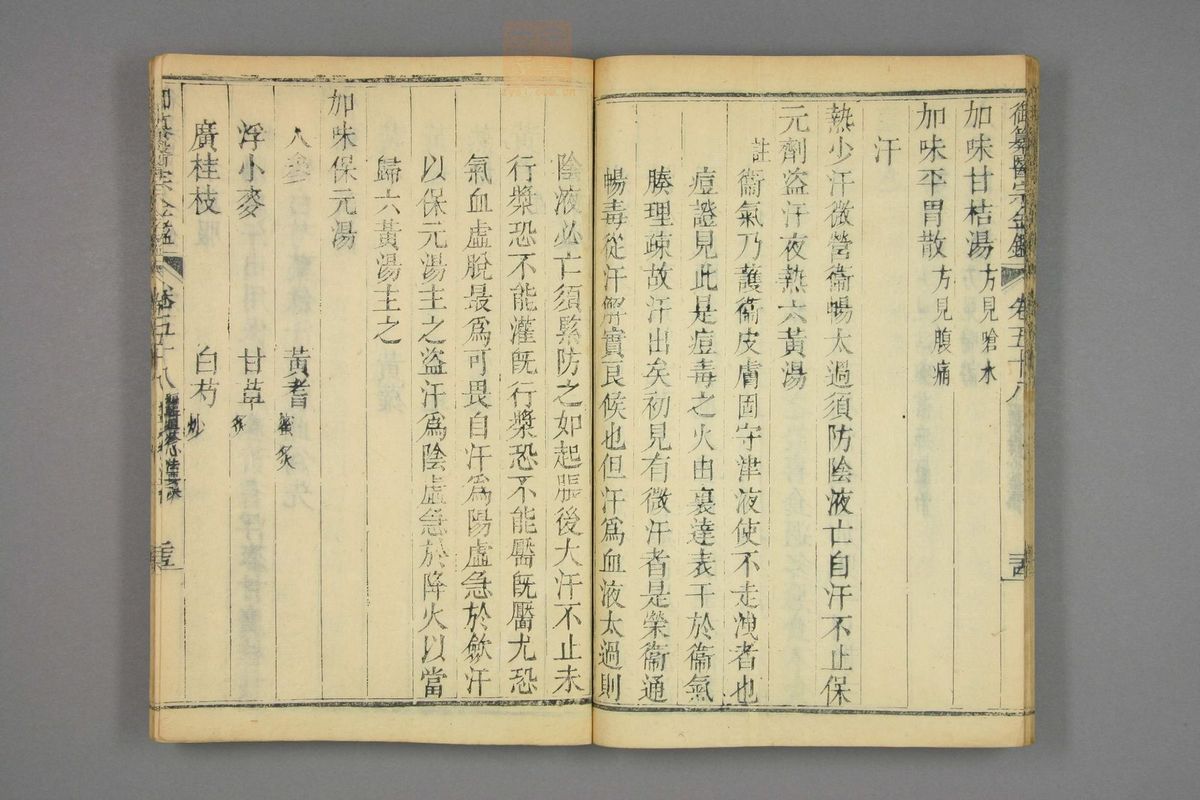 御纂醫宗金鑑 卷五十八
加味甘桔湯方見嗆水
加味平胃散方見腹痛
汗
熱少汗微營衞暢太過須防陰液亡自汗不止保
元劑盜汗夜熱六黃湯
註
衞氣乃護衞皮膚固守津液使不走洩者也
痘證見此是痘毒之火由裏達表干於衞氣
腠理疎故汗出矣初見有微汗者是榮衞通
暢毒從汗解實良候也但汗爲血液太過則
陰液必亡須緊防之如起脹後大汗不止未
行漿恐不能灌旣行漿恐不能靨旣靨尤恐
氣血虛脫最爲可畏自汗爲陽虛急於斂汗
以保元湯主之盜汗爲陰虛急於降火以當
歸六黃湯主之
加味保元湯
人參 黃耆蜜炙
浮小麥 甘草炙
廣桂枝 白芍炒
卷五十八